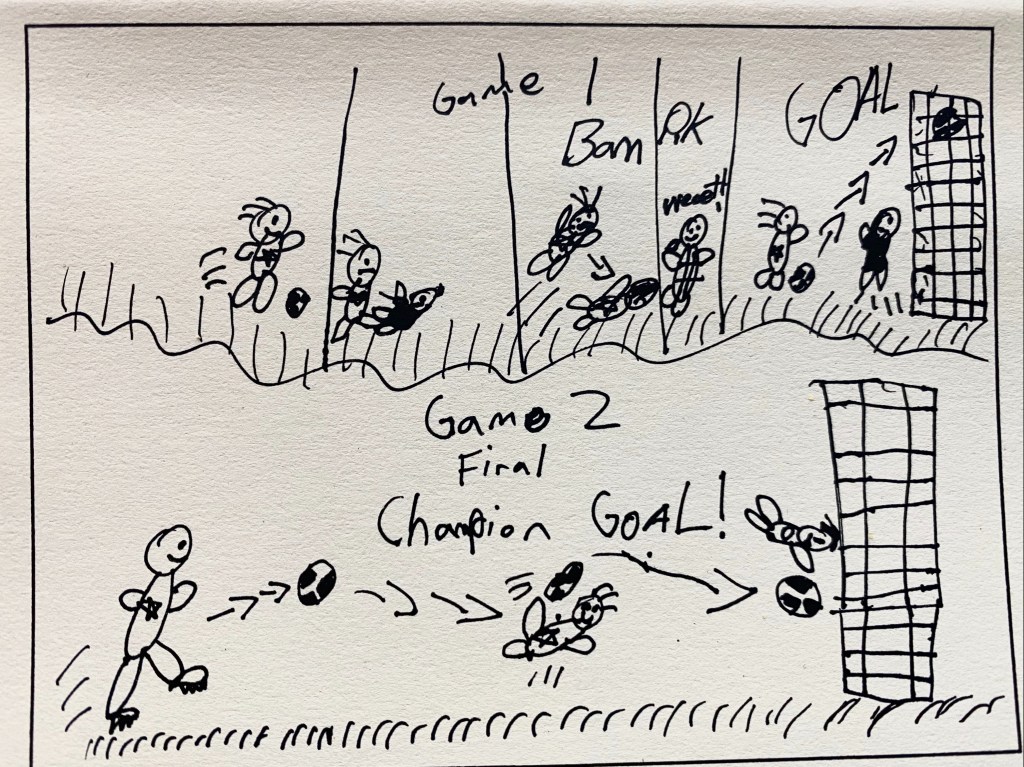 Game 1
Bam
PK
GOAL
Game 2
Final
Champion GOAL!